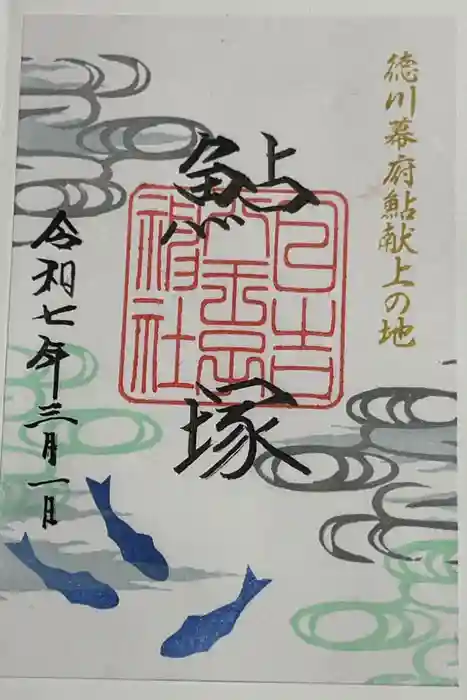 徳川幕府鮎献上の地
鮎塚
日吉
八王子
神社
令和七年三月一日